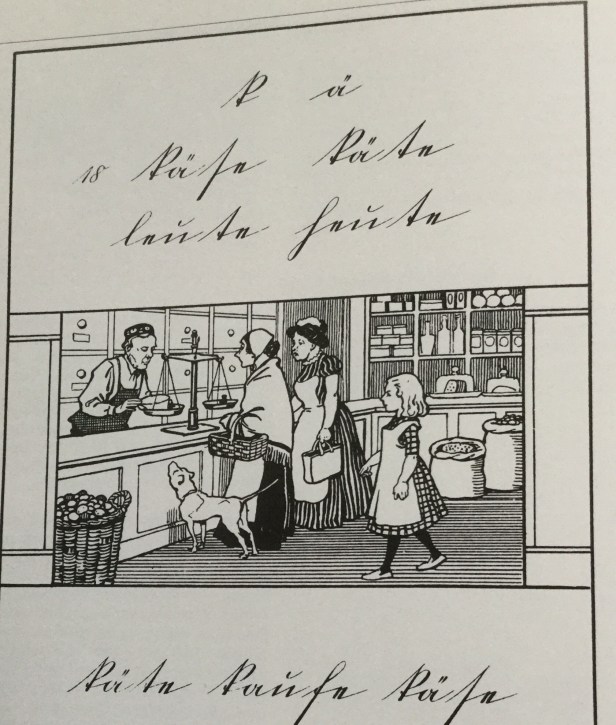 k ä
18 käse käte
leute heute
käte kaufe käse